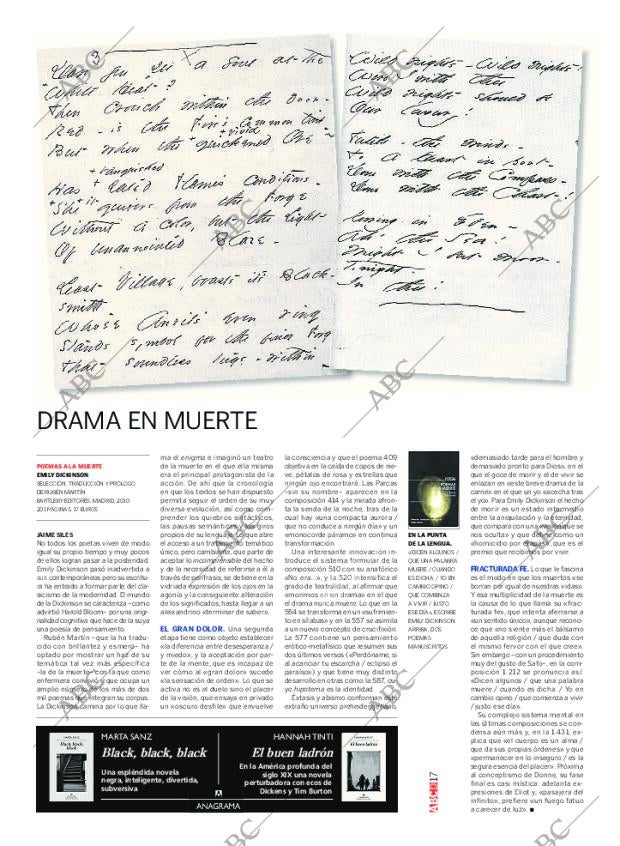 Dare you see a Soul at the
White Heat - ?
Then crouch within the door -
Red - is the Fire's common tint -
But when the quickened Ore
+ vivid
+ vanquished
Has + sated Flame's conditions -
She + quivers from the Forge
Without a color, but the light
Of unannointed Blaze -
Least Village, boasts it's Black-
smith
Whose Anvil's even ring
Stands symbol for the finer Forge
That soundless tugs - within -
Wild nights - Wild nights!
Were I with thee
Wild nights should be
Our luxury!
Futile - the winds -
To a Heart in port -
Done with the Compass -
Done with the Chart!
Rowing in Eden -
Ah - the Sea!
Might I but moor -
Tonight -
In thee!
DRAMA EN MUERTE
POEMAS A LA MUERTE
EMILY DICKINSON
SELECCIÓN, TRADUCCIÓN Y PRÓLOGO
DE RUBÉN MARTÍN
BARTLEBY EDITORES. MADRID, 2010
201 PÁGINAS, 17 EUROS
JAIME SILES
No todos los poetas viven de modo
igual su propio tiempo y muy pocos
de ellos logran pasar a la posteridad.
Emily Dickinson pasó inadvertida a
sus contemporáneos pero su escritu-
ra ha entrado a formar parte del cla-
sicismo de la modernidad. El mundo
de la Dickinson se caracteriza –como
advirtió Harold Bloom– por una origi-
nalidad cognitiva que hace de la suya
una poesía de pensamiento.
Rubén Martín –que la ha tradu-
cido con brillantez y esmero– ha
optado por mostrar un haz de su
temática tal vez más específica
–la de la muerte–, a la que como
enfermera conocía y que ocupa un
amplio número de los más de dos
mil poemas que integran su corpus.
La Dickinson camina por lo que lla-
ma el enigma e imaginó un teatro
de la muerte en el que ella misma
era el principal protagonista de la
acción. De ahí que la cronología
en que los textos se han dispuesto
permita seguir el orden de su muy
diversa evolución, así como com-
prender los quiebros sintácticos,
las pausas semánticas y los giros
propios de su lengua, lo que abre
el acceso a un trabajo no temático
único, pero cambiante, que parte de
aceptar lo incomprensible del hecho
y de la necesidad de referirse a él a
través de perífrasis, se detiene en la
vidriada expresión de los ojos en la
agonía y la consiguiente alteración
de los significados, hasta llegar a un
alexandrino «terminar de saber».
EL GRAN DOLOR. Una segunda
etapa tiene como objeto establecer
«la diferencia entre desesperanza /
y miedo», y la aceptación por par-
te de la mente, que es incapaz de
ver cómo al «gran dolor» sucede
«la sensación de orden». Lo que se
activa no es el duelo sino el placer
de la visión, que ensaya en privado
un «oscuro desfile» que envuelve
la consciencia y que el poema 409
objetiva en la caída de copos de nie-
ve, pétalos de rosa y estrellas que
ningún ojo encontrará. Las Parcas
«sin su nombre» aparecen en la
composición 414 y la mirada afron-
ta la senda de la noche, tras de la
cual hay «una compacta aurora /
que no conduce a ningún día» y un
omnoconde páramo» en continua
transformación.
Una interesante innovación in-
troduce el sistema formular de la
composición 510 con su anafórico
«No era...», y la 520 intensifica el
grado de teatralidad, al afirmar que
«morimos en un drama» en el que
el drama nunca muere. Lo que en la
554 se transforma en «sufrimien-
to en sílabas» y en la 557 se asimila
a un nuevo concepto de crucifixión.
La 577 contiene un pensamiento
erótico-metafísico que resumen sus
dos últimos versos («Perdóname, si
al acariciar tu escarcha / eclipso el
paraíso») y que tiene muy distinto
desarrollo en otras como la 587, cu-
yo hipotema es la identidad.
Éxtasis y abismo conforman este
extraño universo preheideggeriano,
EN LA PUNTA
DE LA LENGUA.
«DICEN ALGUNOS /
QUE UNA PALABRA
MUERE / CUANDO
ES DICHA. / YO EN
CAMBIO OPINO /
QUE COMIENZA
A VIVIR / JUSTO
ESE DÍA», ESCRIBE
EMILY DICKINSON.
ARRIBA, DOS
POEMAS
MANUSCRITOS
«demasiado tarde para el hombre y
demasiado pronto para Dios», en el
que el goce de morir y el de vivir se
enlazan en «este breve drama de la
carne» en el que un yo «acecha tras
el yo». Para Emily Dickinson el hecho
de morir es un estado intermedio
entre la aniquilación y la eternidad,
que compara con una «casa que se
nos oculta» y que define como un
«homicidio por etapas», que es el
premio que recibimos por vivir.
FRACTURADA FE. Lo que le fascina
es el modo en que los muertos «se
borran por igual de nuestra vida».
Y esa multiplicidad de la muerte es
la causa de lo que llama su «frac-
turada fe», que intenta aferrarse a
«un sentido único», aunque recono-
ce que «no siente más el bálsamo
de aquella religión / que duda con
el mismo fervor con el que cree».
Sin embargo –con un procedimiento
muy del gusto de Safo–, en la com-
posición 1.212 se pronuncia así:
«Dicen algunos / que una palabra
muere / cuando es dicha / Yo en
cambio opino / que comienza a vivir
/ justo ese día».
Su complejo sistema mental en
las últimas composiciones se con-
densa aún más y, en la 1.431, ex-
plica que «el cuerpo es un alma /
que da sus propias órdenes» y que
«permanecer en lo inseguro / es la
segura esencia del placer». Próxima
al conceptismo de Donne, su fase
final es casi mística: adelanta ex-
presiones de Eliot y, «pasajera del
infinito», prefiere «un fuego fatuo
a carecer de luz». ■
MARTA SANZ
Black, black, black
Una espléndida novela
negra, inteligente, divertida,
subversiva
HANNAH TINTI
El buen ladrón
En la América profunda del
siglo XIX una novela
perturbadora con ecos de
Dickens y Tim Burton
ANAGRAMA
ABCD 17